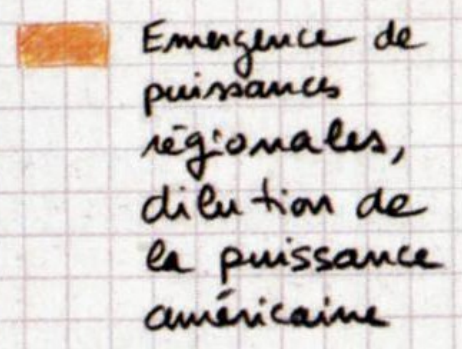 Emergence de
puissances
régionales,
dilution de
la puissance
américaine